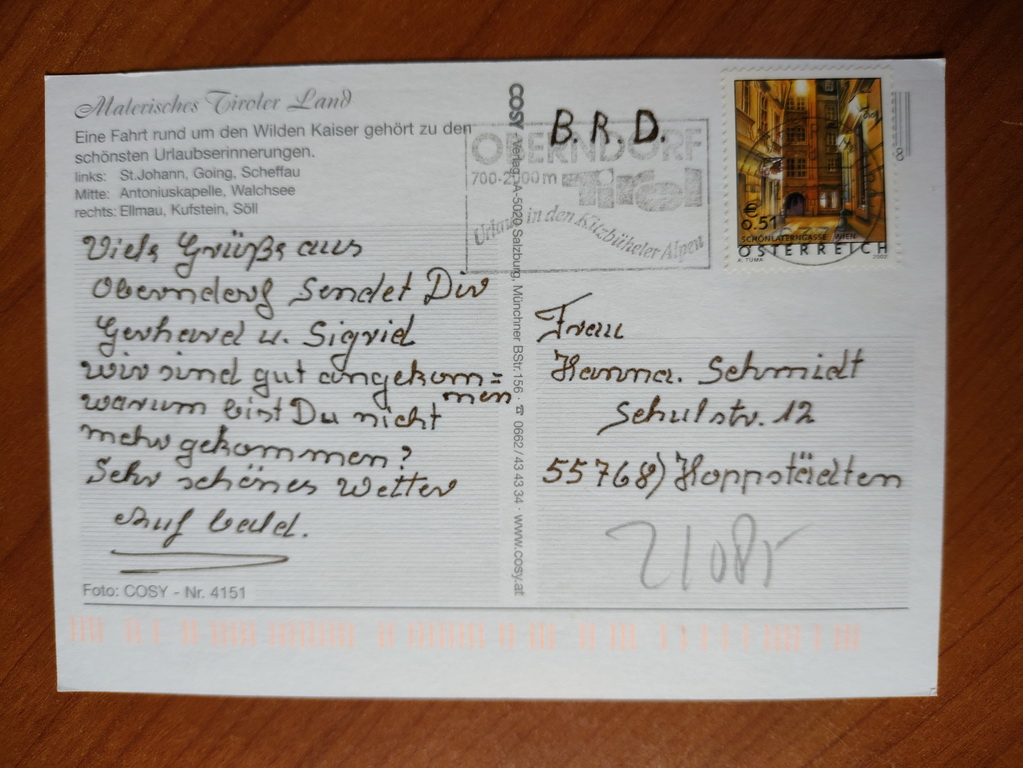 Malerisches Tiroler Land
Eine Fahrt rund um den Wilden Kaiser gehört zu den
schönsten Urlaubserinnerungen.
links: St.Johann, Going, Scheffau
Mitte: Antoniuskapelle, Walchsee
rechts: Ellmau, Kufstein, Söll
Viele Grüße aus
Oberndorf Sendet Dir
Gerhard u. Sigrid
wir sind gut angekom=
men
warum bist Du nicht
mehr gekommen?
Sehr schönes Wetter
Auf bald.
Foto: COSY - Nr. 4151
COSY Verlag, A-5020 Salzburg, Münchner BStr.156 · ☎ 0662/43 43 34 · www.cosy.at
B.R.D.
OBERNDORF
700-2000m Tirol
Urlaub in den Kitzbüheler Alpen
€ 0.51
SCHÖNLATERNGASSE, WIEN
ÖSTERREICH
A. TUMA 2002
Frau
Hanna. Schmidt
Schulstr. 12
55768) Hoppstädten